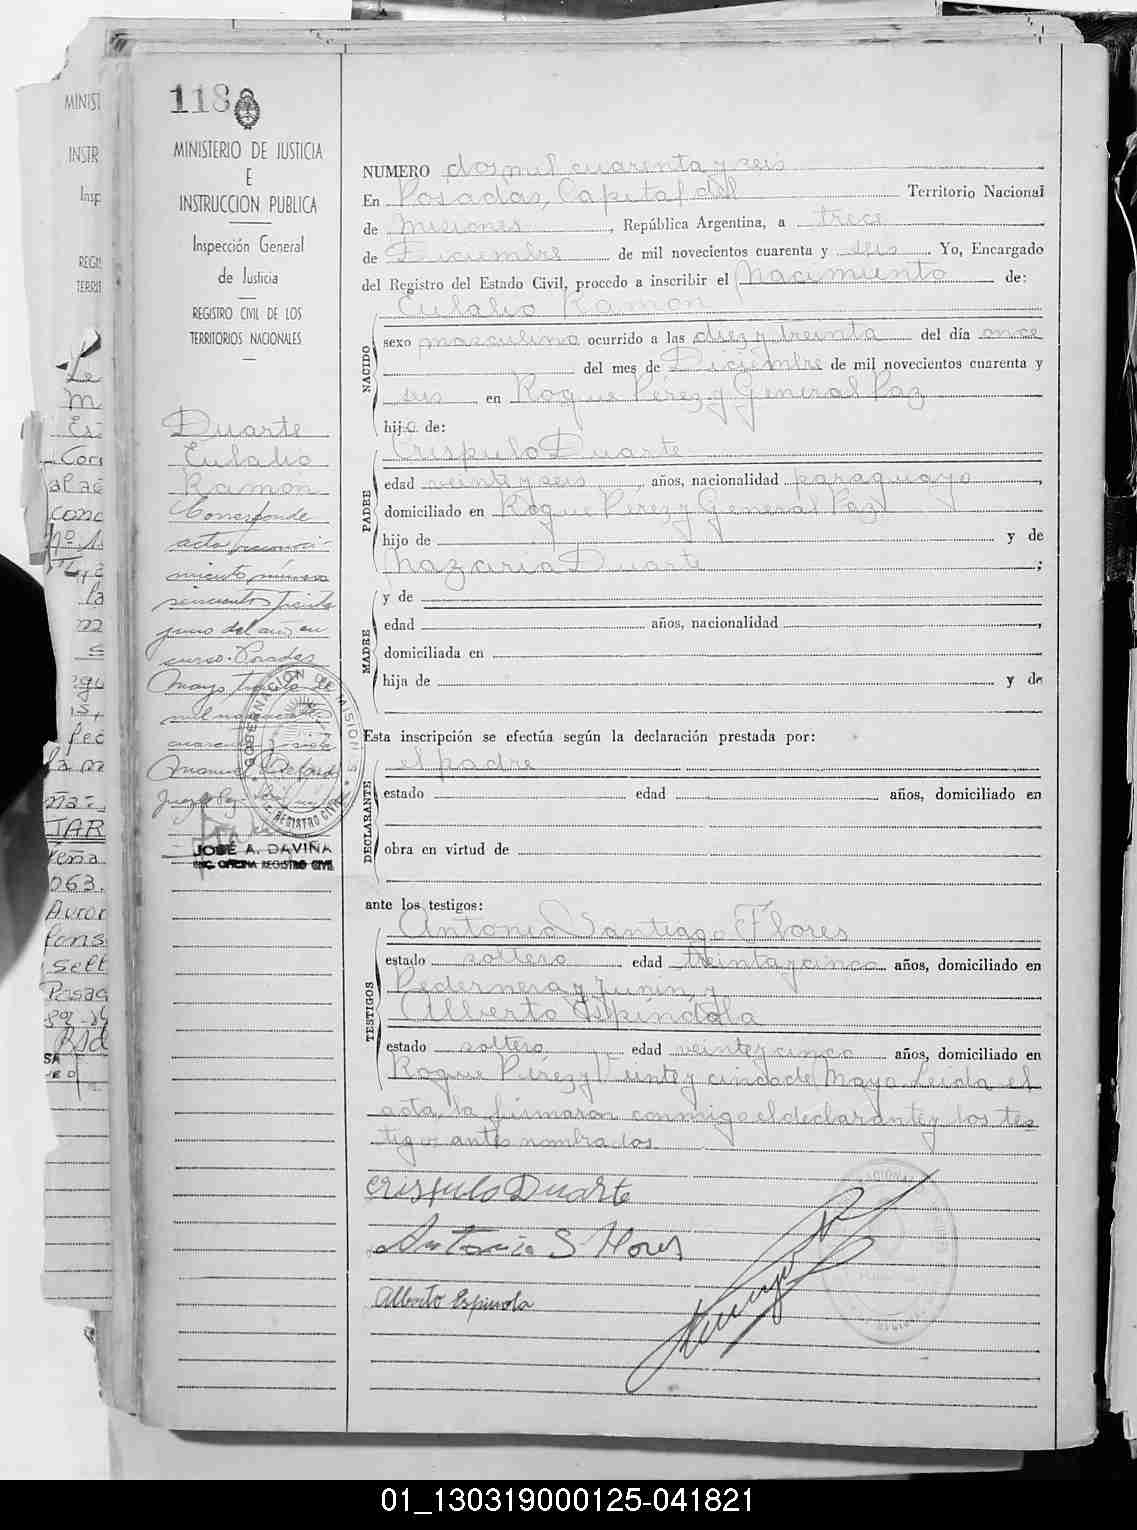 118
MINISTERIO DE JUSTICIA
E
INSTRUCCION PUBLICA
Inspección General
de Justicia
REGISTRO CIVIL DE LOS
TERRITORIOS NACIONALES
Duarte
Eulalio
Ramon
Corresponde
acta reconoci-
miento número
seiscientos treinta
junio del año en
curso. Posadas
Mayo treinta de
mil novecientos
cuarenta y siete
Manuel
GOBERNACION DE MISIONES
REGISTRO CIVIL
JOSÉ A. DAVIÑA
ENC. OFICINA REGISTRO CIVIL
NUMERO dos mil cuarenta y seis
En Posadas, Capital del Territorio Nacional
de Misiones, República Argentina, a trece
de Diciembre de mil novecientos cuarenta y seis. Yo, Encargado
del Registro del Estado Civil, procedo a inscribir el nacimiento de:
NACIDO
Eulalio Ramon
sexo masculino ocurrido a las diez y treinta del día once
del mes de Diciembre de mil novecientos cuarenta y
seis en Roque Pérez y General Paz
hijo de:
PADRE
Crispulo Duarte
edad veinte y seis años, nacionalidad paraguayo,
domiciliado en Roque Perez y General Paz
hijo de y de
Nazaria Duarte;
MADRE
y de
edad años, nacionalidad,
domiciliada en
hija de y de
Esta inscripción se efectúa según la declaración prestada por:
DECLARANTE
el padre
estado edad años, domiciliado en
obra en virtud de
ante los testigos:
TESTIGOS
Antonio Santiago Flores
estado soltero edad treinta y cinco años, domiciliado en
Pedernera y Junin, y
Alberto Espíndola
estado soltero edad veinte y cinco años, domiciliado en
Roque Pérez y veinte y cinco de Mayo. Leida el
acta, la firmaron conmigo el declarante y los tes
tigos antes nombrados.
Crispulo Duarte
Antonio S Flores
Alberto Espindola
01_130319000125-041821